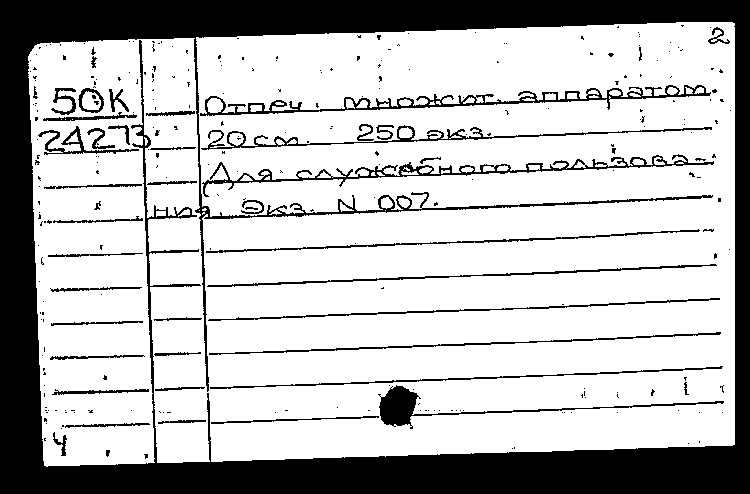 2
50К Отпеч. множит. аппаратом.
24273 20 см. 250 экз.
Для служебного пользова-
ния. Экз. N 007.
Ч